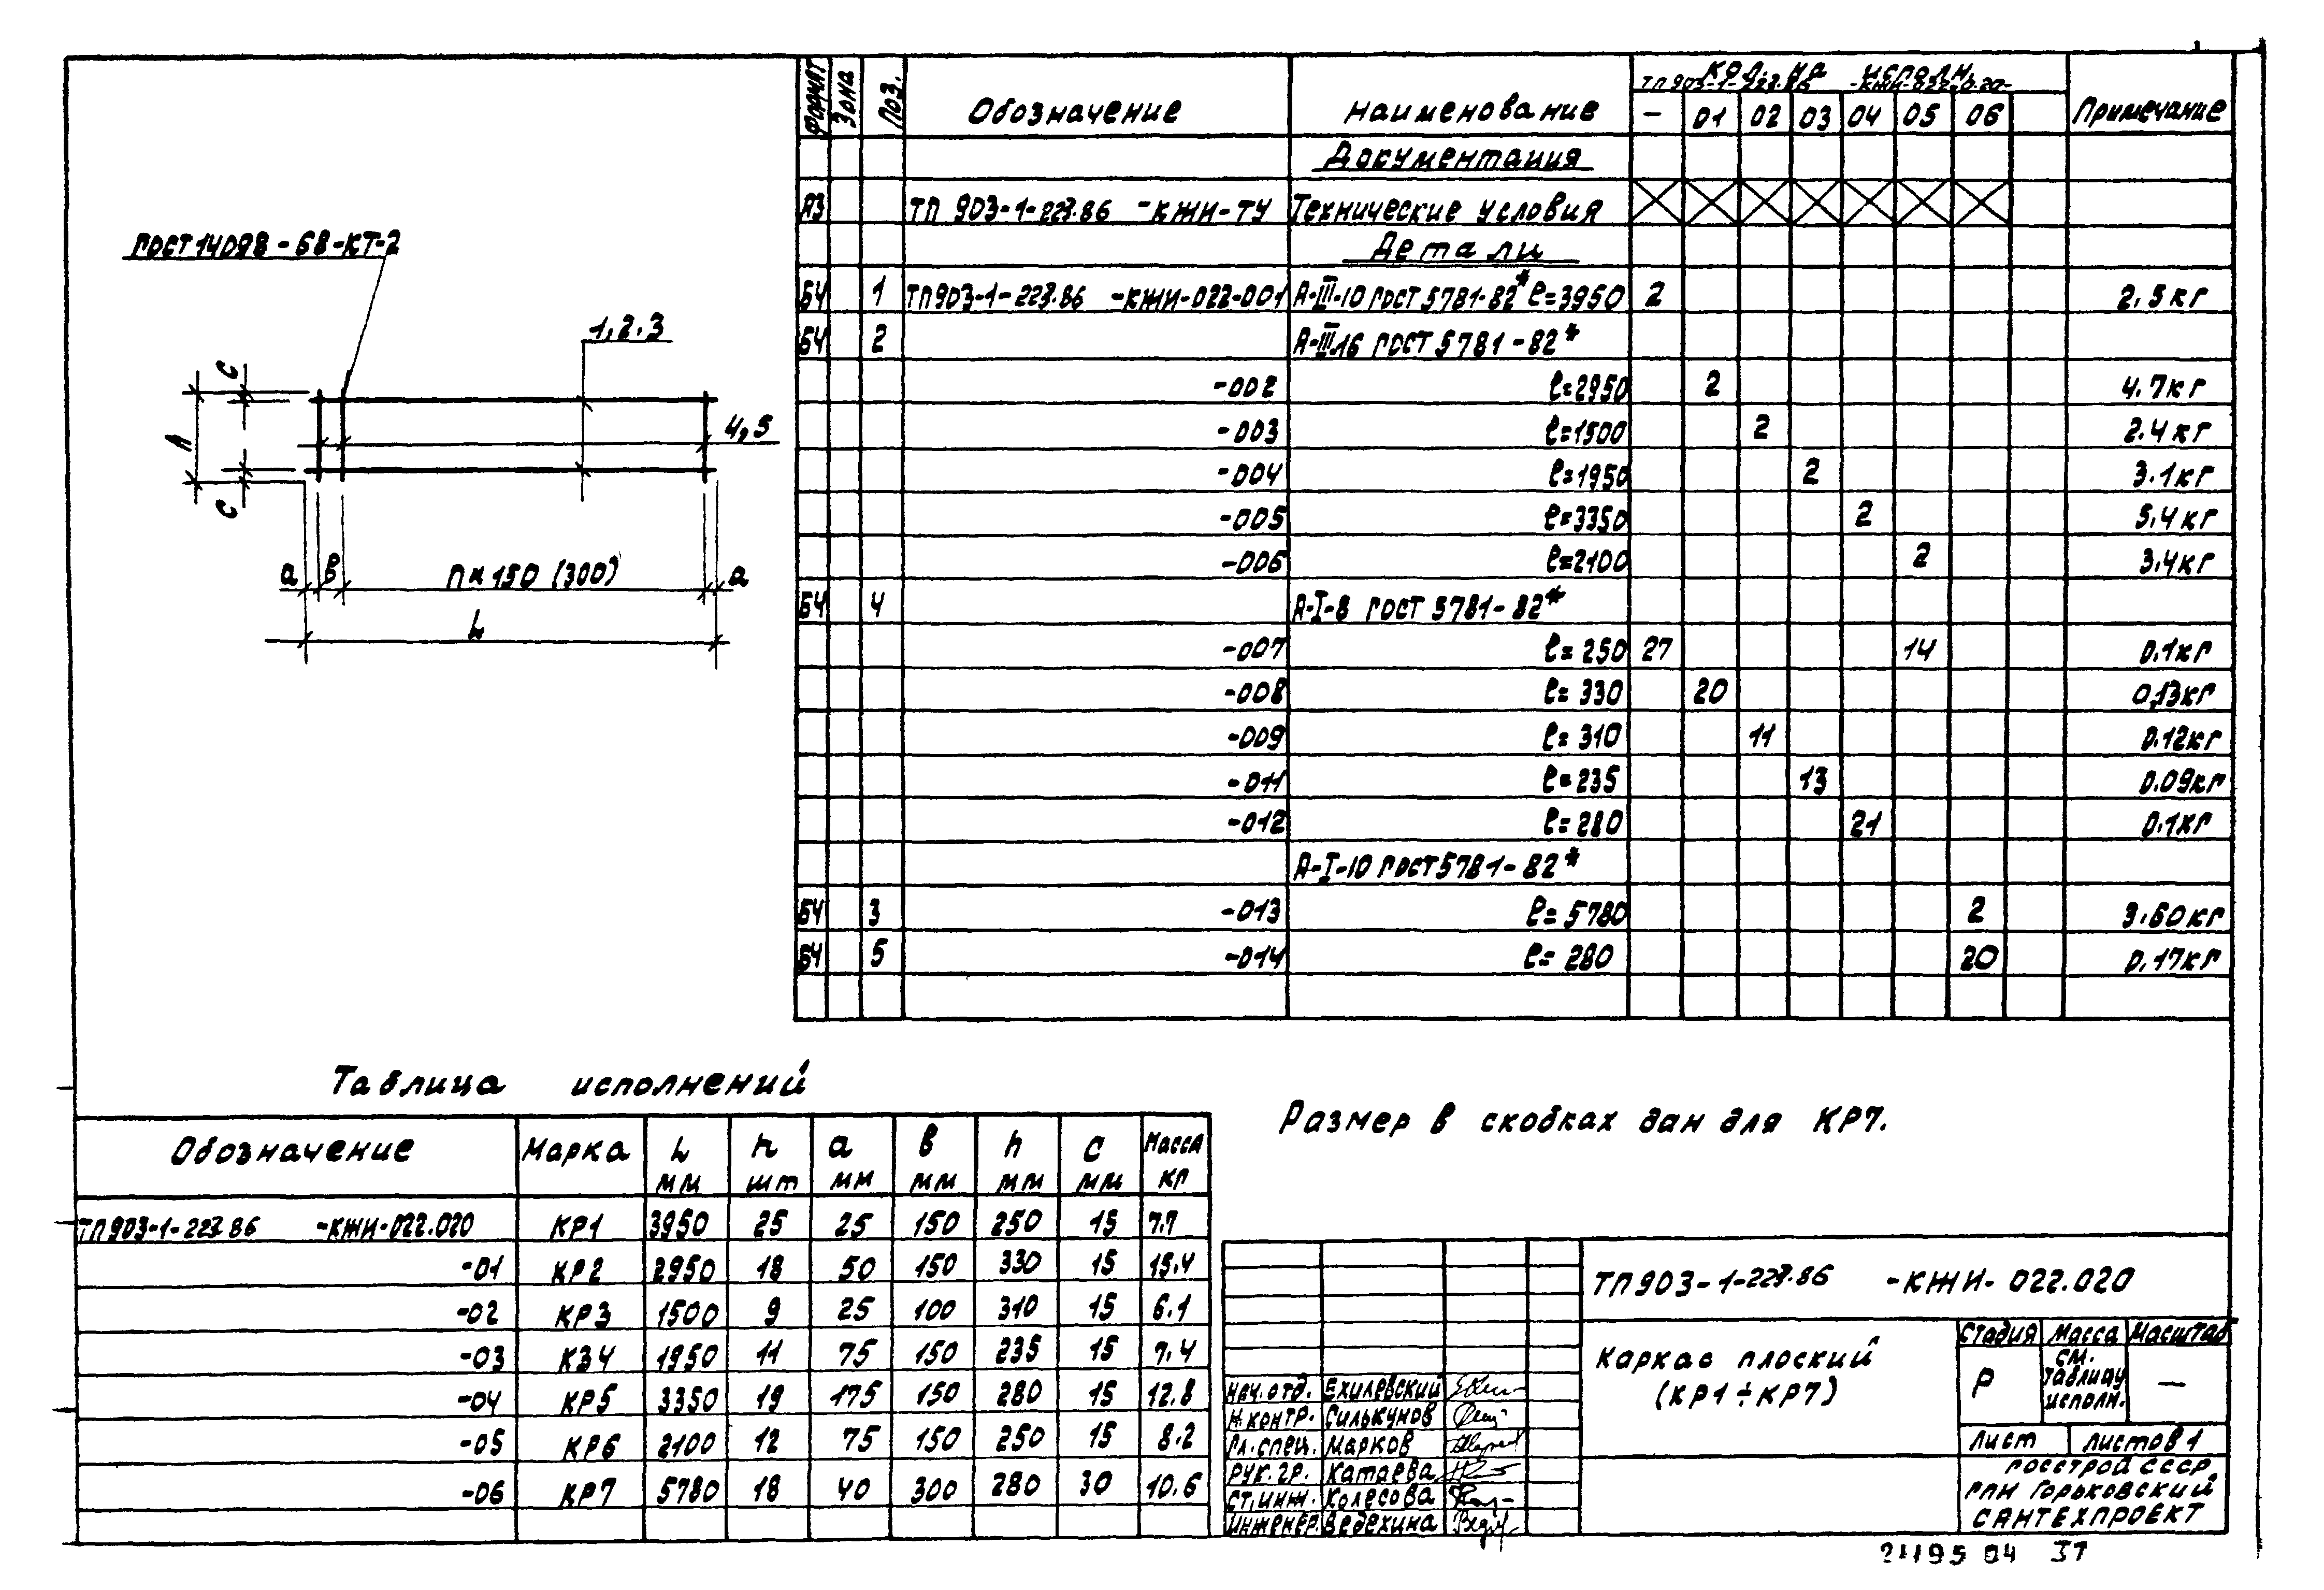 ГОСТ 14098-68-КТ-2
1,2.3
4,5
С
h
С
а
в
n×150 (300)
а
L
Формат Зона Поз. Обозначение Наименование Кол. на исполн. Примечание
ТП 903-1-223.86 -КЖИ-022.020-
- 01 02 03 04 05 06
Документация
А3 ТП 903-1-223.86 -КЖИ-ТУ Технические условия
Детали
БЧ 1 ТП903-1-223.86 -КЖИ-022-001 А-III-10 ГОСТ 5781-82* ℓ=3950 2 2.5кг
БЧ 2 А-III16 ГОСТ 5781-82*
-002 ℓ=2950 2 4.7кг
-003 ℓ=1500 2 2.4кг
-004 ℓ=1950 2 3.1кг
-005 ℓ=3350 2 5.4кг
-006 ℓ=2100 2 3.4кг
БЧ 4 А-I-8 ГОСТ 5781-82*
-007 ℓ=250 27 14 0.1кг
-008 ℓ=330 20 0,13кг
-009 ℓ=310 11 0.12кг
-011 ℓ=235 13 0.09кг
-012 ℓ=280 21 0.1кг
А-I-10 ГОСТ 5781-82*
БЧ 3 -013 ℓ=5780 2 3.60кг
БЧ 5 -014 ℓ=280 20 0.17кг
Таблица исполнений
Обозначение Марка L мм n шт а мм в мм h мм С мм Масса кг
ТП903-1-223.86 -КЖИ-022.020 КР1 3950 25 25 150 250 15 7.7
-01 КР2 2950 18 50 150 330 15 15.4
-02 КР3 1500 9 25 100 310 15 6.1
-03 КЗ4 1950 11 75 150 235 15 7.4
-04 КР5 3350 19 175 150 280 15 12.8
-05 КР6 2100 12 75 150 250 15 8.2
-06 КР7 5780 18 40 300 280 30 10.6
Размер в скобках дан для КР7.
ТП903-1-223.86 -КЖИ-022.020
Каркас плоский
(КР1÷КР7)
Стадия Масса Масштаб
Р см. таблицу исполн. —
Лист Листов 1
Госстрой СССР
ГПИ Горьковский
Сантехпроект
Нач.отд. Ехилевский
Н.контр. Силькунов
Гл.спец. Марков
Рук.гр. Катаева
Ст.инж. Колесова
Инженер. Ведехина
21195 04 37